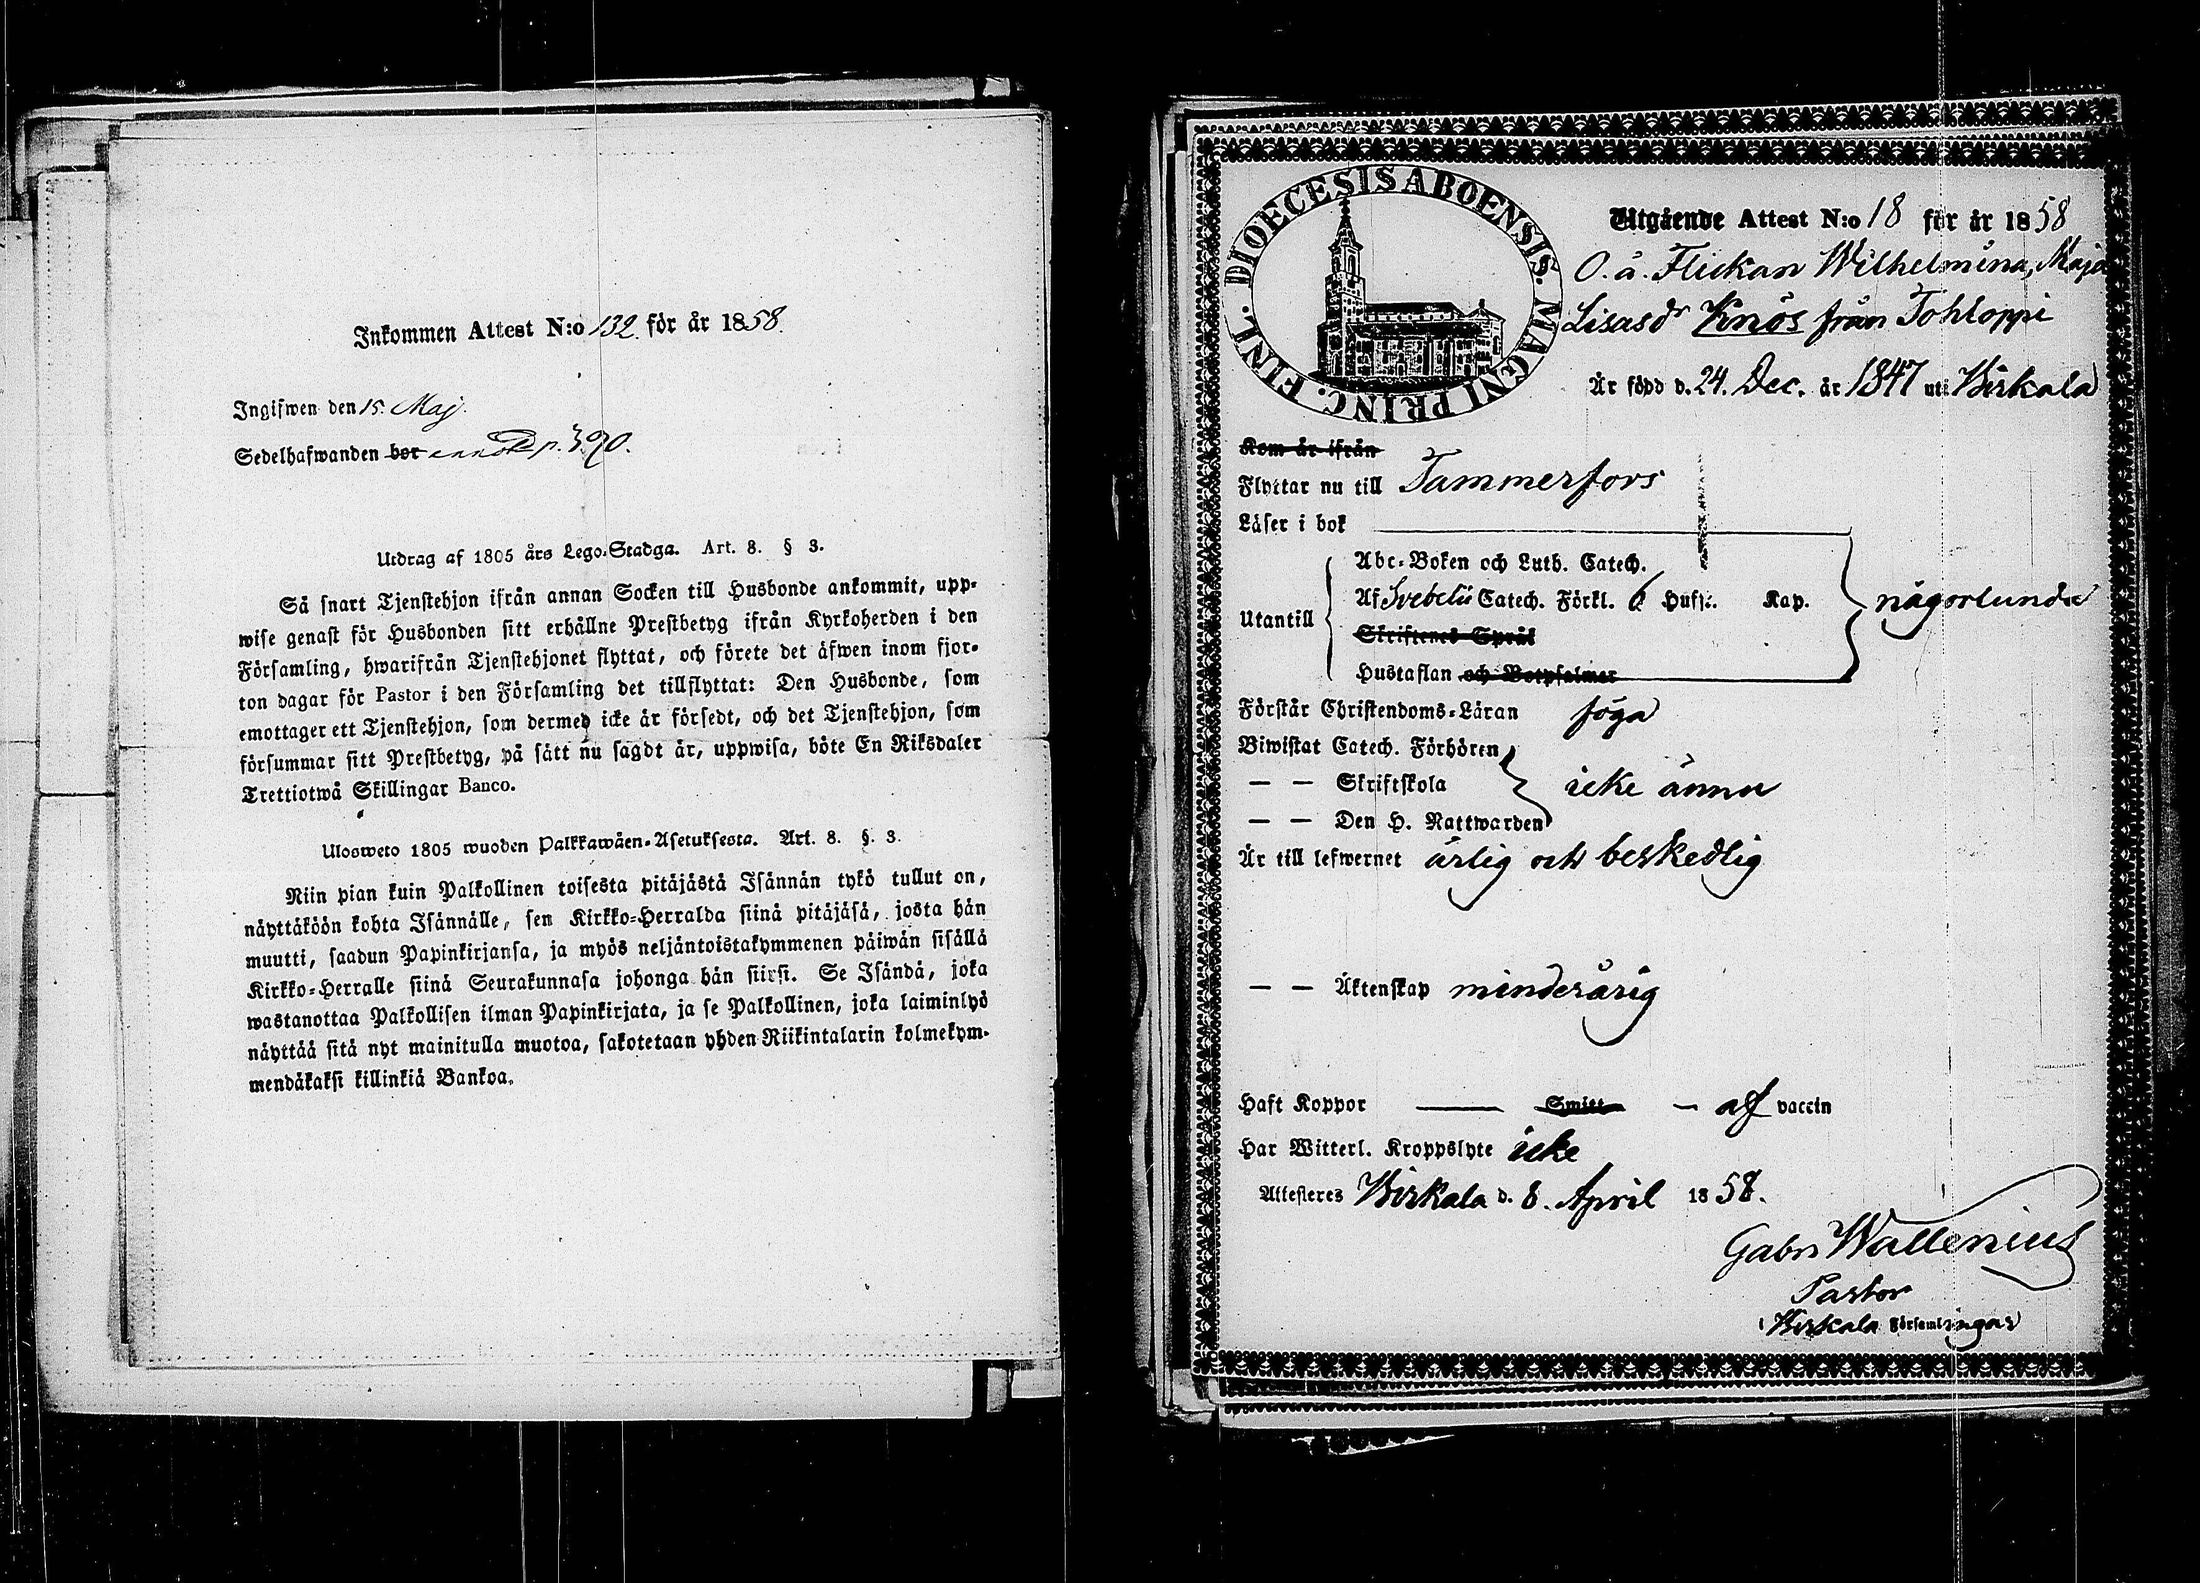 Inkommen Attest N:o 132. för år 1858.
Ingifwen den 15. Maj.
Sedelhafwanden bor p. 390.
Utdrag af 1805 års Lego-Stadga. Art. 8. § 3.
Så snart Tjenstehjon ifrån annan Socken till Husbonde ankommit, upp-
wise genast för Husbonden sitt erhållne Prestbetyg ifrån Kyrkoherden i den
Församling, hwarifrån Tjenstehjonet flyttat, och förete det äfwen inom fjor-
ton dagar för Pastor i den Församling det tillflyttat: Den Husbonde, som
emottager ett Tjenstehjon, som dermed icke är försedt, och det Tjenstehjon, som
försummar sitt Prestbetyg, på sätt nu sagdt är, uppwisa, böte En Riksdaler
Trettiotwå Skillingar Banco.
Ulosweto 1805 wuoden Palkkawäen-Asetuksesta. Art. 8. §. 3.
Niin pian kuin Palkollinen toisesta pitäjästä Isännän tykö tullut on,
näyttäköön kohta Isännälle, sen Kirkko-Herralda siinä pitäjäsä, josta hän
muutti, saadun Papinkirjansa, ja myös neljäntoistakymmenen päiwän sisällä
Kirkko-Herralle siinä Seurakunnasa johonga hän siirsi. Se Isändä, joka
wastanottaa Palkollisen ilman Papinkirjata, ja se Palkollinen, joka laiminlyö
näyttää sitä nyt mainitulla muotoa, sakotetaan yhden Riikintalarin kolmekym-
mendäkaksi killinkiä Bankoa.
DIOECESIS ABOENSIS. MAGNI PRINC. FINL.
Utgående Attest N:o 18 för år 1858
O. ä. Flickan Wilhelmina, Maja
Lisasdr Knös från Tohloppi
Är född d. 24. Dec. år 1847 uti Birkala
Kom år ifrån
Flyttar nu till Tammerfors
Läser i bok
Abc-Boken och Luth. Catech.
Utantill Af Svebelii Catech. Förkl. 6 Hufst. Kap. någorlunda
Skriftenes Språk
Hustaflan och Botpsalmer
Förstår Christendoms-Läran föga
Biwistat Catech. Förhören
— — Skriftskola icke ännu
— — Den H. Nattwarden
Är till lefwernet ärlig och beskedlig
— — Äktenskap minderårig
Haft Koppor — Smitt — af vaccin
Har Witterl. Kroppslyte icke
Attesteres Birkala d. 8. April 1858.
Gabr Wallenius
Pastor
i Birkala Församlingar